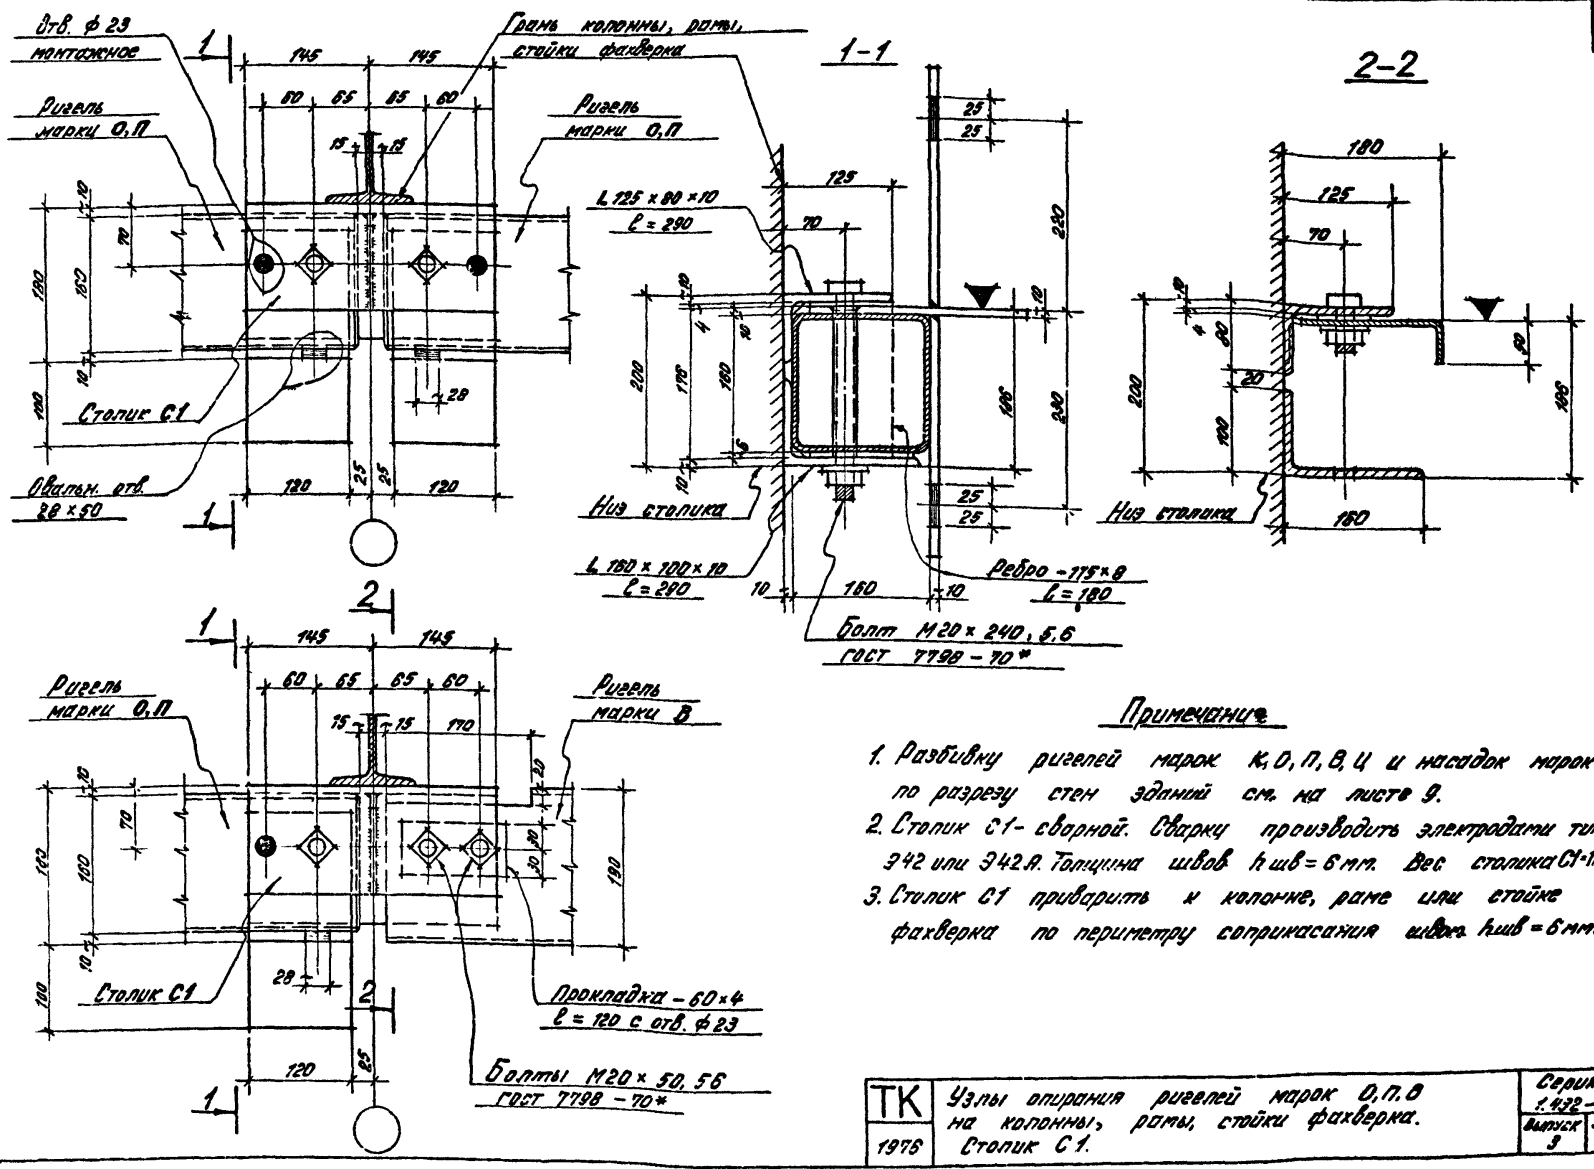 Отв. ф 23
монтажное
Ригель
марки О,П
1
145
145
60
65
65
60
15
15
Грань колонны, рамы,
стойки фахверка
Ригель
марки О,П
10
70
180
160
10
100
28
Столик С1
Овальн. отв.
28 × 50
120
25
25
120
1
1-1
25
25
125
70
L 125 × 80 × 10
ℓ = 290
220
10
4
10
10
200
176
160
6
10
186
230
25
25
Низ столика
L 160 × 100 × 10
ℓ = 290
10
160
10
Ребро -115×8
ℓ = 180
Болт М20 × 240, 5,6
ГОСТ 7798 - 70*
2-2
180
125
70
10
4
80
20
200
100
60
186
Низ столика
160
2
1
145
145
60
65
65
60
15
15
170
Ригель
марки О,П
Ригель
марки В
10
70
160
10
100
20
30
30
190
28
Столик С1
2
Прокладка - 60×4
ℓ = 120 с отв. ф 23
Болты М20 × 50, 56
ГОСТ 7798 - 70*
120
25
1
Примечание
1. Разбивку ригелей марок К, О, П, В, Ц и насадок марок
по разрезу стен зданий см. на листе 9.
2. Столик С1 - сварной. Сварку производить электродами
Э42 или Э42А. Толщина швов hшв = 6 мм. Вес столика С1-
3. Столик С1 приварить к колонне, раме или стойке
фахверка по периметру соприкасания швом hшв = 6 мм.
ТК
1976
Узлы опирания ригелей марок О, П, В
на колонны, рамы, стойки фахверка.
Столик С1.
1.432-
Выпуск
3